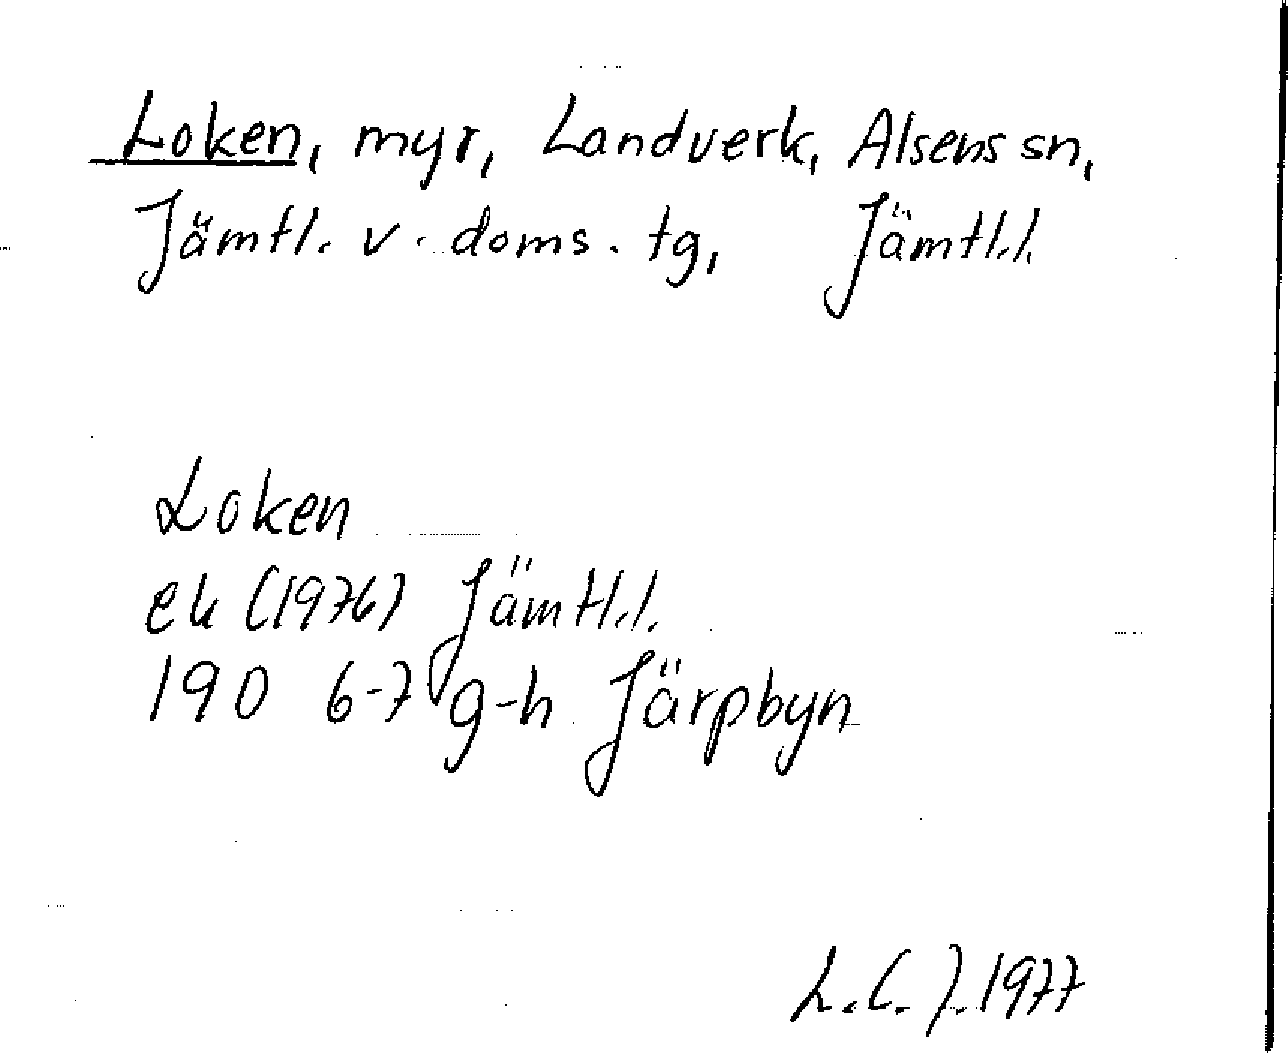 Loken, myr, Landverk, Alsens sn,
Jämtl. v. doms. tg, Jämtl.l.
Loken
ek (1976) Jämtl.l.
190 6-7 g-h Järpbyn
L.C.J. 1977